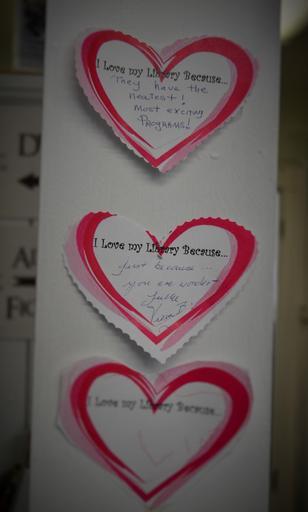 I Love my Library Because...
They have the
neatest!
most exciting
PROGRAMS!
I Love my Library Because...
Just because ...
you are wonder-
fulll
I Love my Library Because...